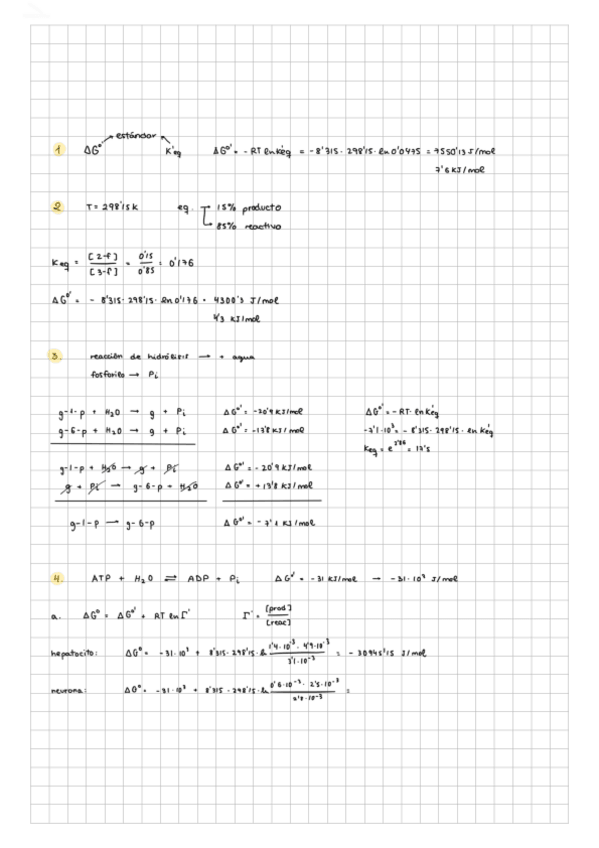 estándar
1 ΔG°' K'eq ΔG°' = - RT ln K'eq = - 8'315 · 298'15 · ln 0'0475 = 7550'13 J/mol
7'6 KJ/mol
2 T = 298'15 K eq. 15% producto
85% reactivo
Keq = [2-f] / [3-f] = 0'15 / 0'85 = 0'176
ΔG°' = - 8'315 · 298'15 · ln 0'176 = 4300'3 J/mol
4'3 KJ/mol
3. reacción de hidrólisis → + agua
fosforilo → Pi
g-1-p + H2O → g + Pi ΔG°' = -20'9 KJ/mol ΔG°' = - RT · ln K'eq
g-6-p + H2O → g + Pi ΔG°' = -13'8 KJ/mol -7'1·10³ = - 8'315 · 298'15 · ln K'eq
Keq = e^2'86 = 17'5
g-1-p + H2O → g + Pi ΔG°' = - 20'9 KJ/mol
g + Pi → g-6-p + H2O ΔG°' = + 13'8 KJ/mol
g-1-p → g-6-p ΔG°' = - 7'1 KJ/mol
4. ATP + H2O ⇌ ADP + Pi ΔG°' = -31 KJ/mol → -31·10³ J/mol
a. ΔG° = ΔG°' + RT ln Γ Γ = [prod] / [reac]
hepatocito: ΔG° = -31·10³ + 8'315 · 298'15 · ln 1'4·10⁻³ · 4'9·10⁻³ / 3'1·10⁻³ = - 30945'15 J/mol
neurona: ΔG° = -31·10³ + 8'315 · 298'15 · ln 0'6·10⁻³ · 2'5·10⁻³ / ·10⁻³ =